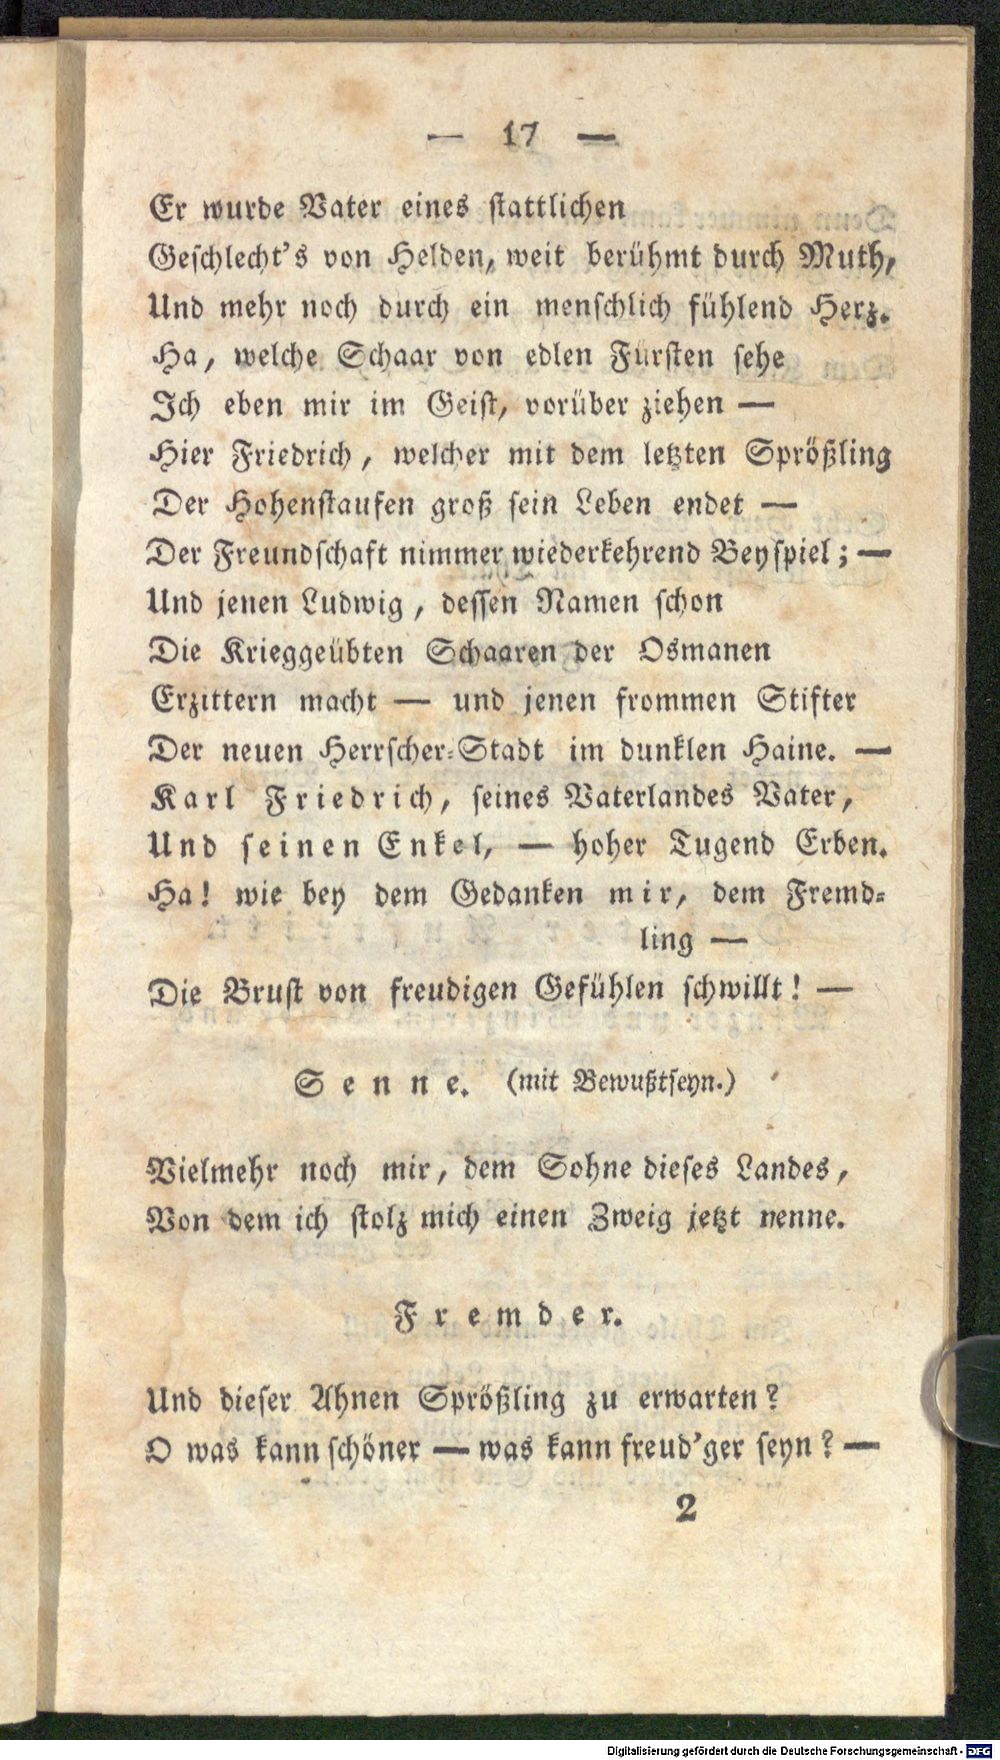 — 17 —
Er wurde Vater eines stattlichen
Geschlecht's von Helden, weit berühmt durch Muth,
Und mehr noch durch ein menschlich fühlend Herz.
Ha, welche Schaar von edlen Fürsten sehe
Ich eben mir im Geist, vorüber ziehen —
Hier Friedrich, welcher mit dem letzten Sprößling
Der Hohenstaufen groß sein Leben endet —
Der Freundschaft nimmer wiederkehrend Beyspiel; —
Und jenen Ludwig, dessen Namen schon
Die Krieggeübten Schaaren der Osmanen
Erzittern macht — und jenen frommen Stifter
Der neuen Herrscher-Stadt im dunklen Haine. —
Karl Friedrich, seines Vaterlandes Vater,
Und seinen Enkel, — hoher Tugend Erben.
Ha! wie bey dem Gedanken mir, dem Fremd-
ling —
Die Brust von freudigen Gefühlen schwillt! —
Senne. (mit Bewußtseyn.)
Vielmehr noch mir, dem Sohne dieses Landes,
Von dem ich stolz mich einen Zweig jetzt nenne.
Fremder.
Und dieser Ahnen Sprößling zu erwarten?
O was kann schöner — was kann freud'ger seyn? —
2
Digitalisierung gefördert durch die Deutsche Forschungsgemeinschaft - DFG